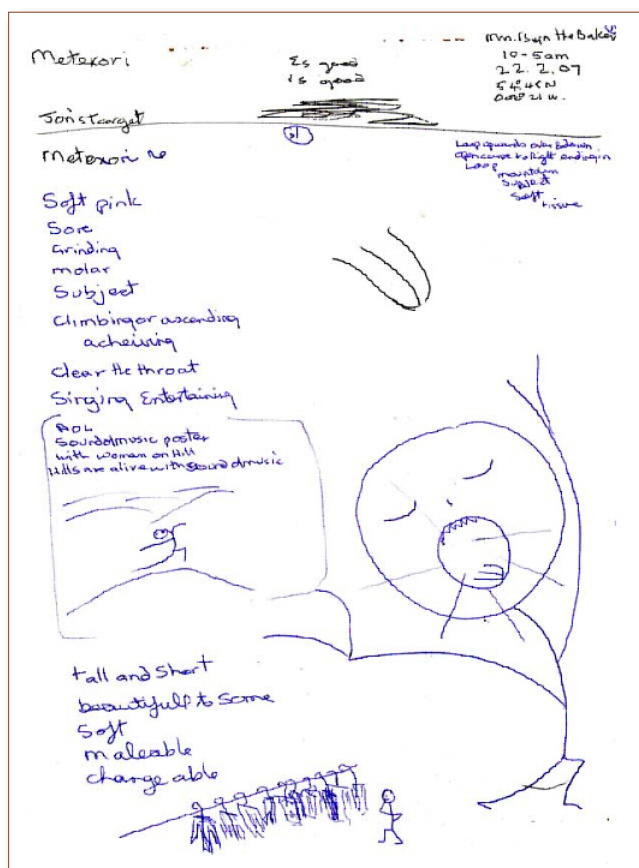 Metexori
Es good
is good
10-5am
22.2.07
54°.45N
000° 21 W.
Jons target
Metexori
Loop upwards over & down
open curve to Right ending in
Loop
mountain
Subject
Soft
tissue
Soft pink
Sore
Grinding
molar
Subject
Climbing or ascending
acheiving
Clear the throat
Singing Entertaining
AOL
Sound of music poster
with women on Hill
Hills are alive with sound of music
tall and short
beautifull to some
Soft
maleable
change able